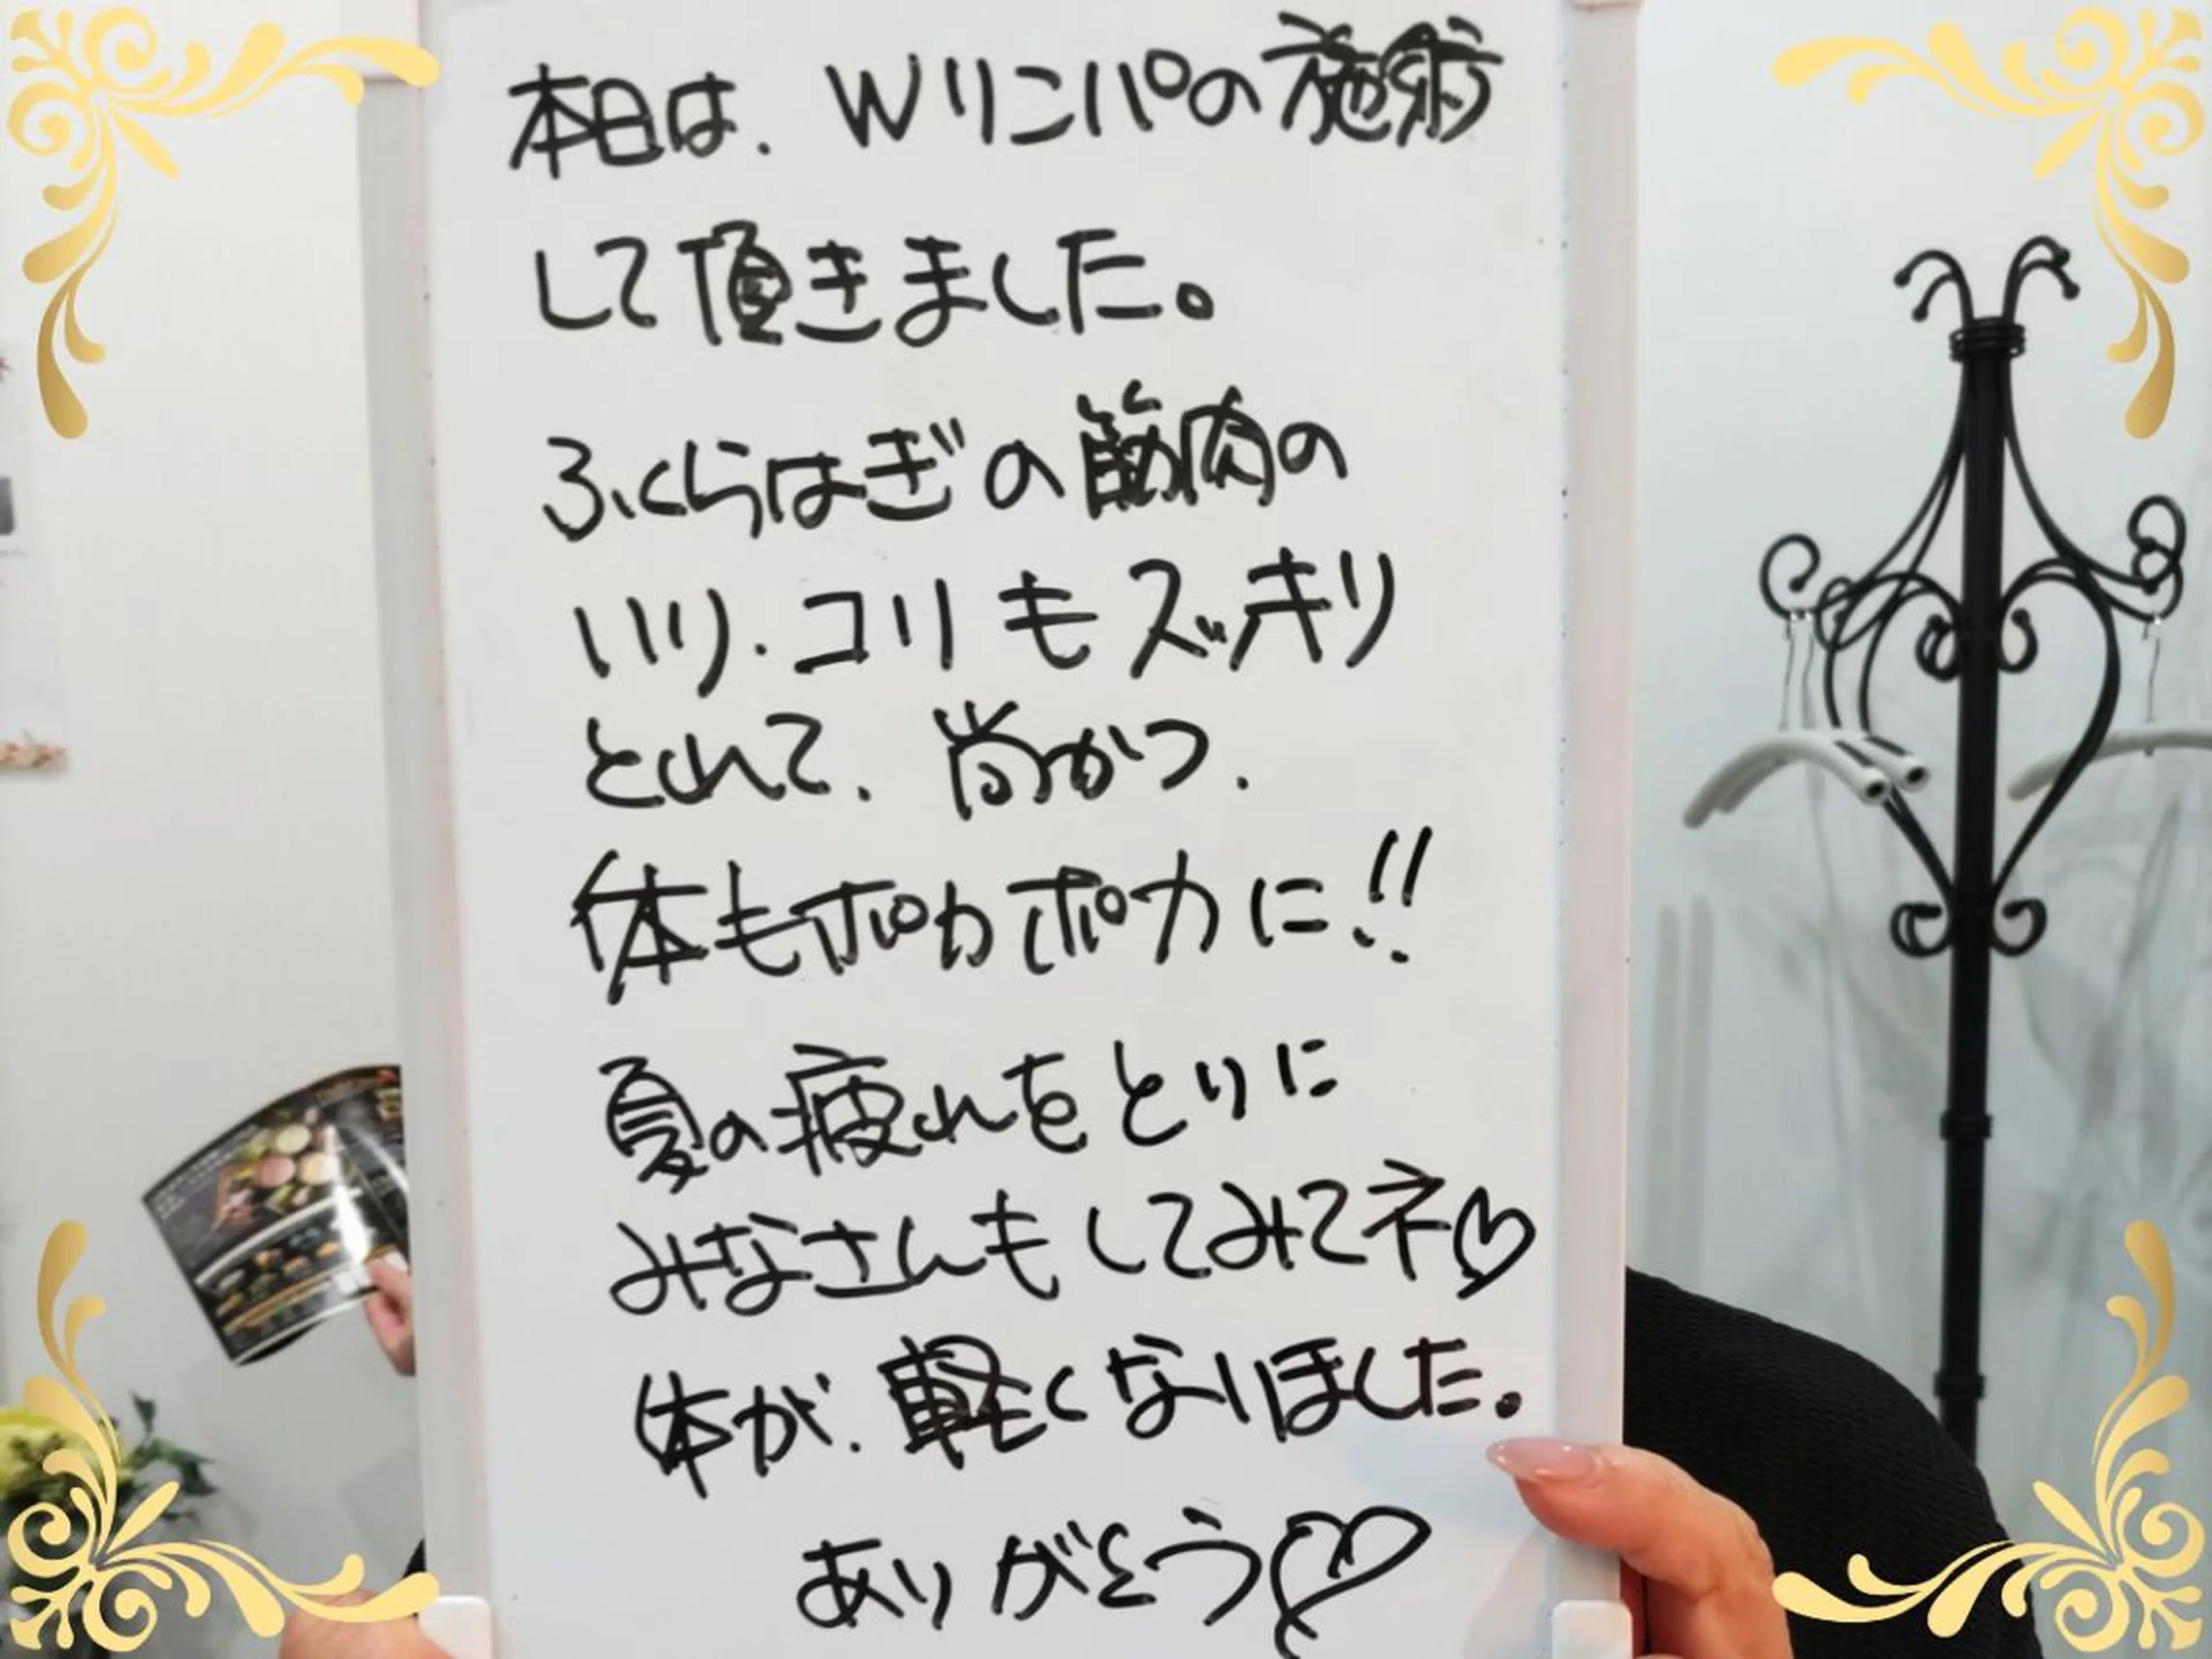 本日は、Wリンパの施術
して頂きました。
ふくらはぎの筋肉の
いり・コリもズッキリ
とれて、尚かつ、
体もポカポカに!!
夏の疲れをとりに
みなさんもしてみてネ♡
体が、軽くなりました。
ありがとう♡